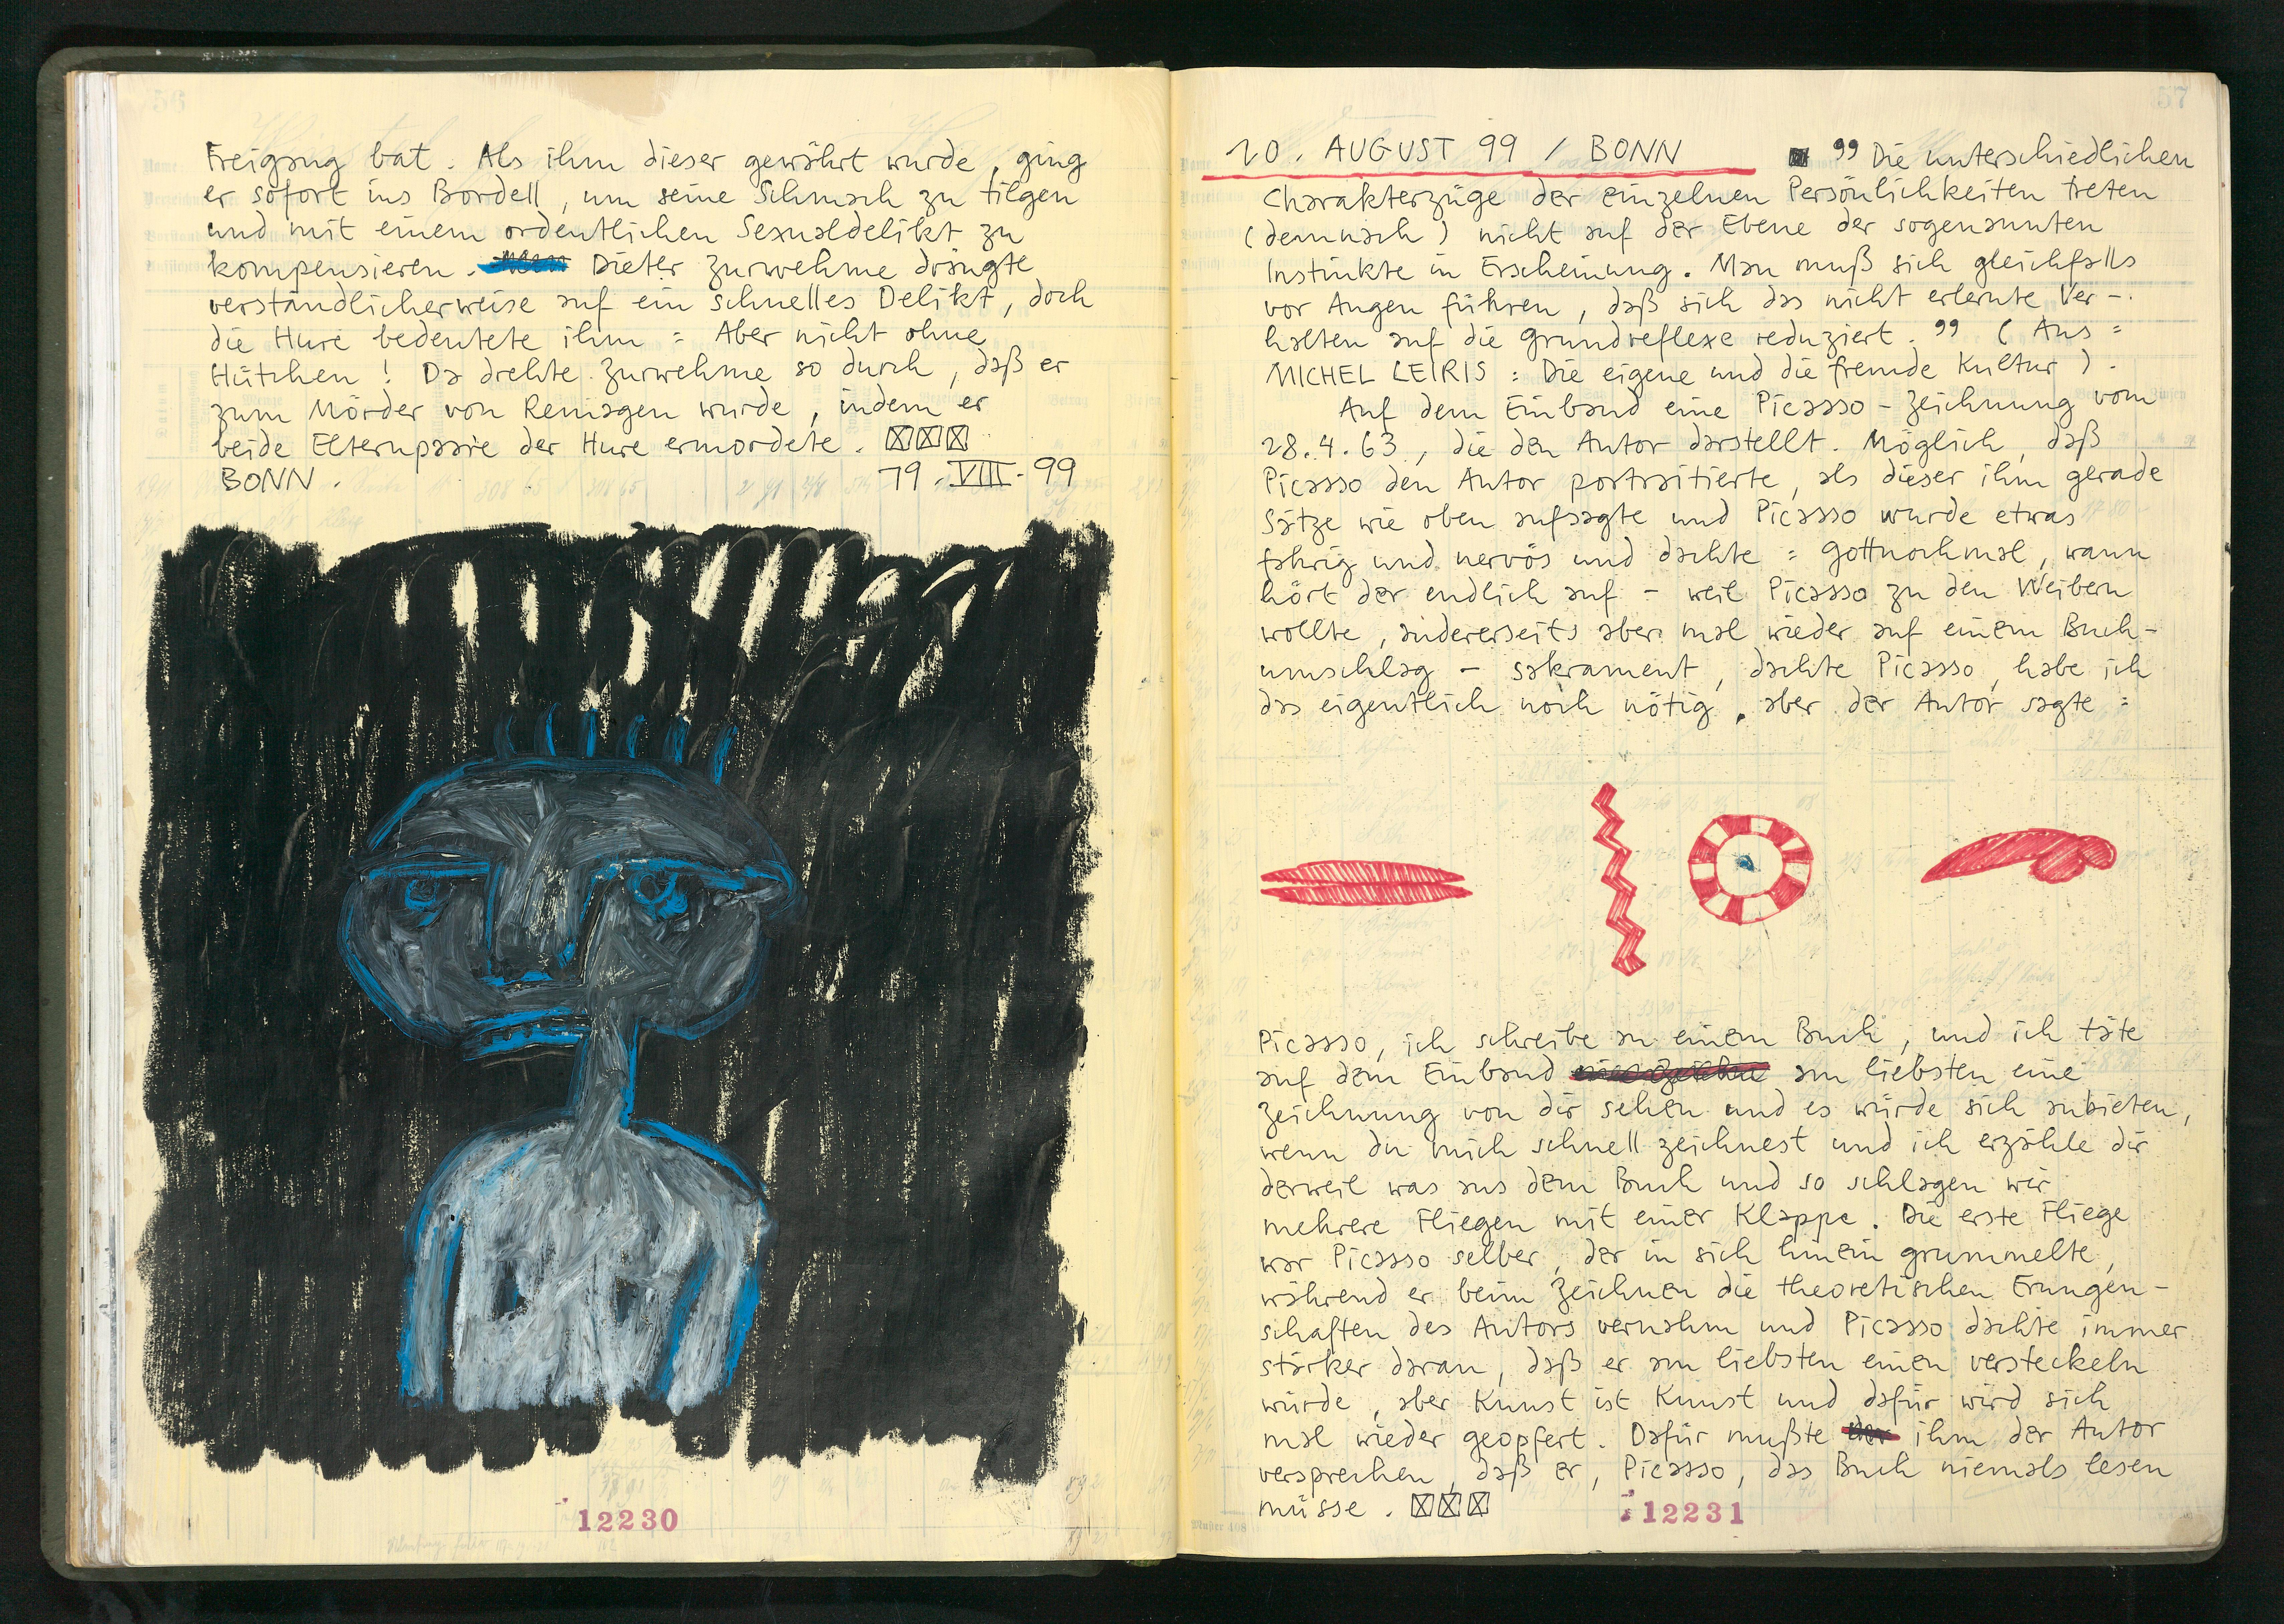 56
Freigang bat. Als ihm dieser gewährt wurde, ging
er sofort ins Bordell, um seine Schmach zu tilgen
und mit einem ordentlichen Sexualdelikt zu
kompensieren. Dieter Zurwehme drängte
verständlicherweise auf ein schnelles Delikt, doch
die Hure bedeutete ihm: Aber nicht ohne
Hütchen! Da drehte Zurwehme so durch, daß er
zum Mörder von Remagen wurde, indem er
beide Elternpaare der Hure ermordete.
BONN. 19. VIII. 99
12230
57
20. AUGUST 99 / BONN " Die unterschiedlichen
Charakterzüge der einzelnen Persönlichkeiten treten
(demnach) nicht auf der Ebene der sogenannten
Instinkte in Erscheinung. Man muß sich gleichfalls
vor Augen führen, daß sich das nicht erlernte Ver-
halten auf die Grundreflexe reduziert. " (Aus:
MICHEL LEIRIS: Die eigene und die fremde Kultur).
Auf dem Einband eine Picasso-Zeichnung vom
28.4.63, die den Autor darstellt. Möglich, daß
Picasso den Autor portraitierte, als dieser ihm gerade
Sätze wie oben aufsagte und Picasso wurde etwas
fahrig und nervös und dachte: Gottnochmal, wann
hört der endlich auf - weil Picasso zu den Weibern
wollte, andererseits aber mal wieder auf einem Buch-
umschlag - sakrament, dachte Picasso, habe ich
das eigentlich noch nötig, aber der Autor sagte:
Picasso, ich schreibe an einem Buch, und ich täte
auf dem Einband am liebsten eine
Zeichnung von dir sehen und es würde sich anbieten,
wenn du mich schnell zeichnest und ich erzähle dir
derweil was aus dem Buch und so schlagen wir
mehrere Fliegen mit einer Klappe. Die erste Fliege
war Picasso selber, der in sich hinein grummelte,
während er beim Zeichnen die theoretischen Erungen-
schaften des Autors vernahm und Picasso dachte immer
stärker daran, daß er am liebsten einen versteckeln
würde, aber Kunst ist Kunst und dafür wird sich
mal wieder geopfert. Dafür mußte der ihm der Autor
versprechen, daß er, Picasso, das Buch niemals lesen
müsse.
12231